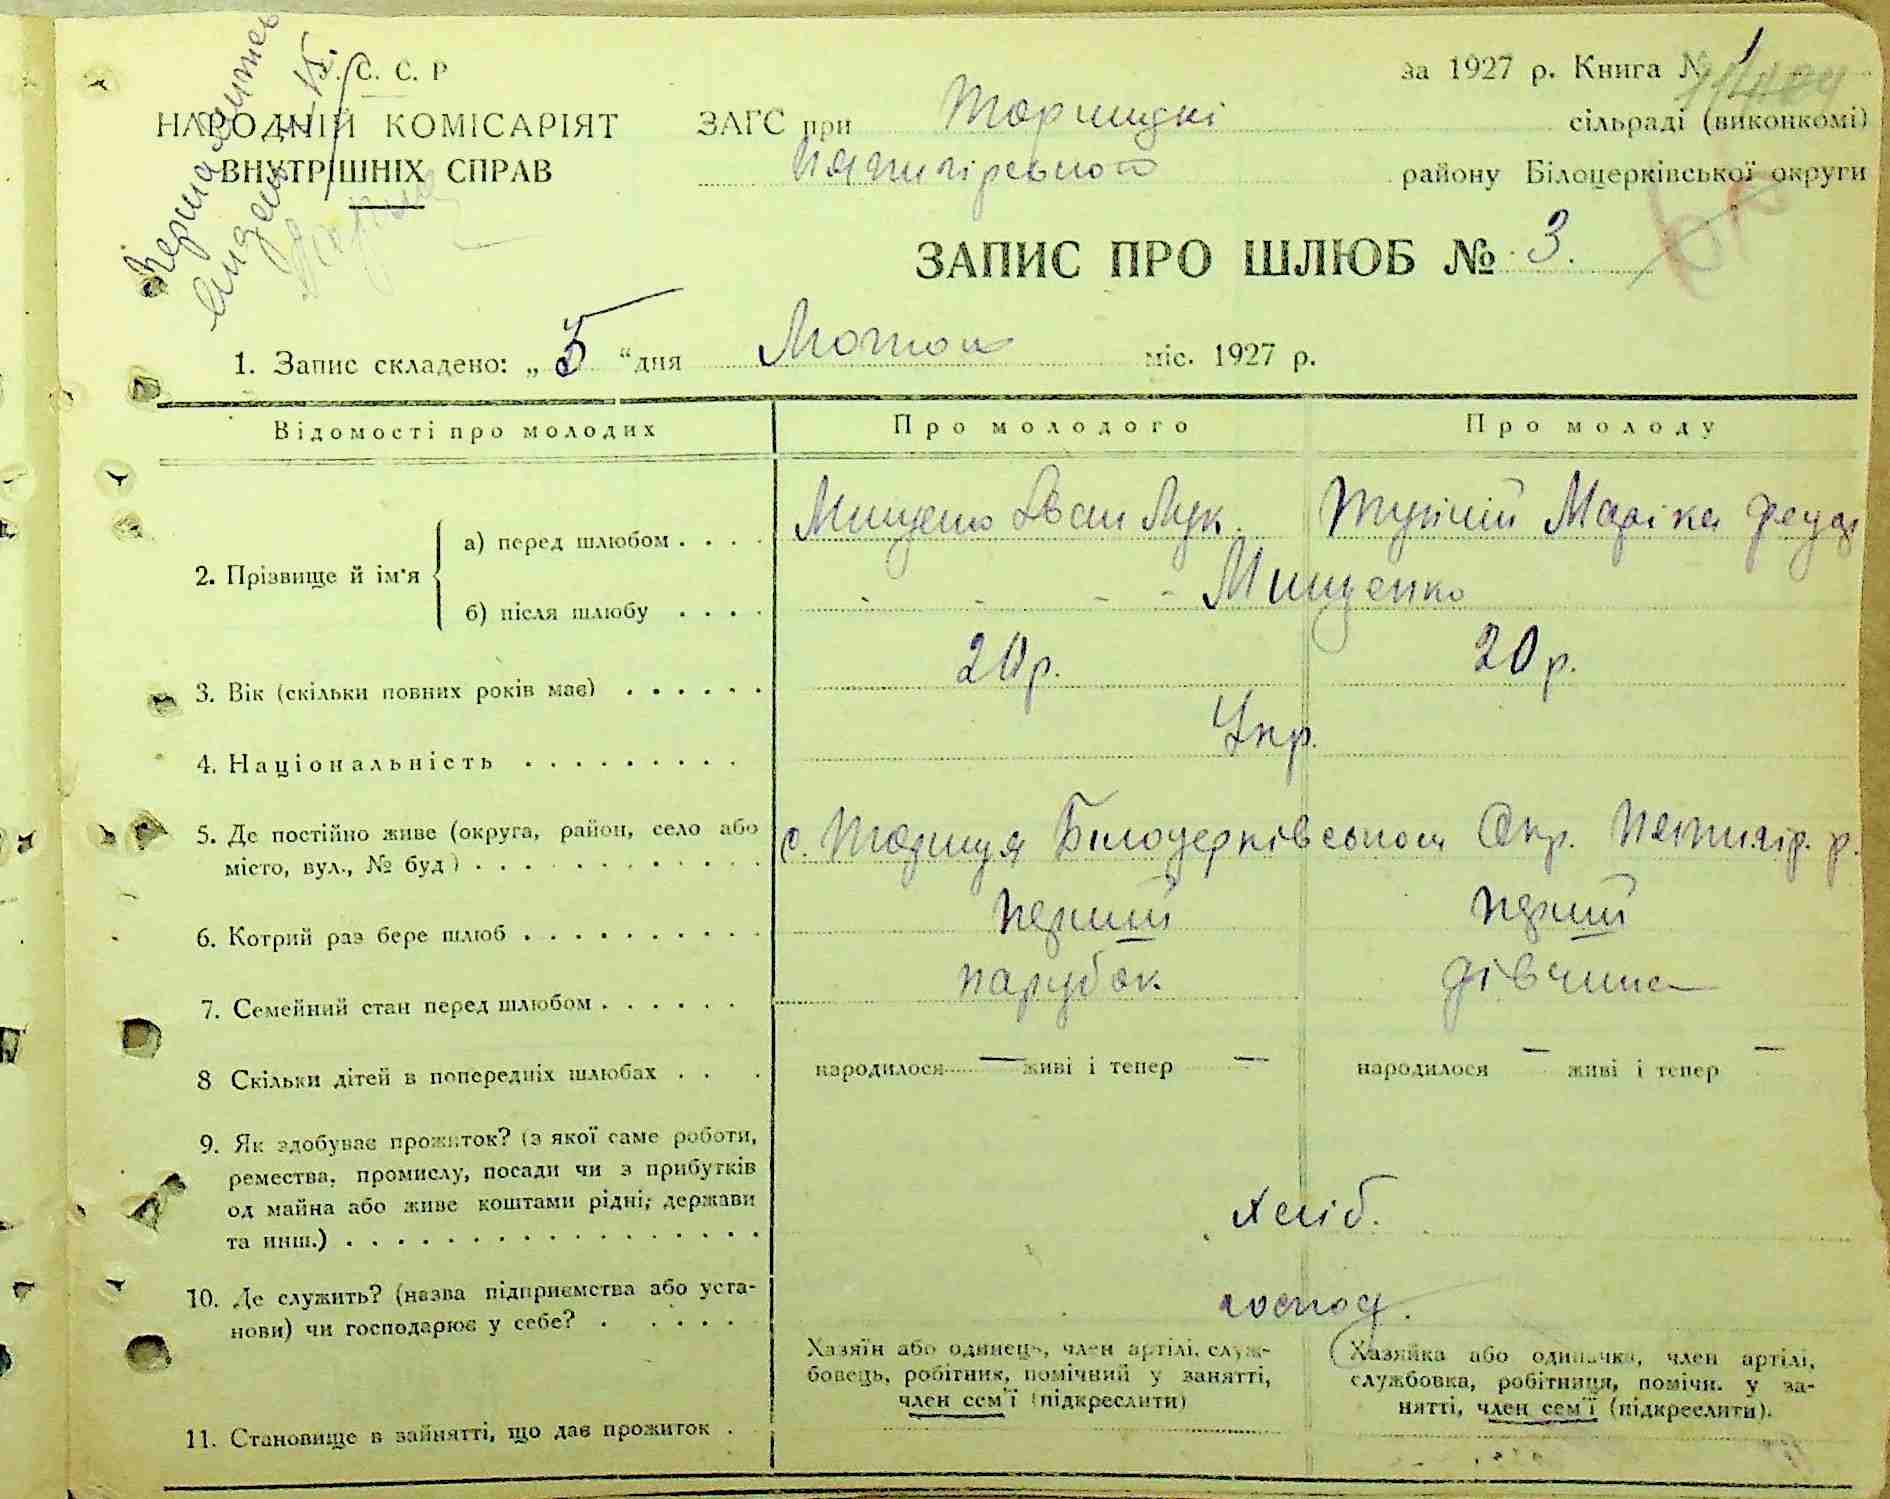 С. С. Р
за 1927 р. Книга №
НАРОДНІЙ КОМІСАРІЯТ
ВНУТРІШНІХ СПРАВ
ЗАГС при Торчицькі сільраді (виконкомі)
Пятигірського району Білоцерківської округи
ЗАПИС ПРО ШЛЮБ № 3.
1. Запис складено: „ 5 “ дня Лютого міс. 1927 р.
Відомості про молодих
Про молодого
Про молоду
2. Прізвище й ім'я
а) перед шлюбом . . . .
Мищенко Іван Лук.
Маріка
б) після шлюбу . . . .
- - - - Мищенко
3. Вік (скільки повних років має) . . . . . .
20 р.
20 р.
4. Національність . . . . . . . . .
Укр.
5. Де постійно живе (округа, район, село або
місто, вул., № буд) . . . . . . . . . . .
с. Торчиця Білоцерківської Окр. Пятигір. р.
6. Котрий раз бере шлюб . . . . . . . . . .
перший
перший
7. Семейний стан перед шлюбом . . . . . .
парубок
дівчина
8 Скільки дітей в попередніх шлюбах . . .
народилося — живі і тепер —
народилося — живі і тепер —
9. Як здобуває прожиток? (з якої саме роботи,
ремества, промислу, посади чи з прибутків
од майна або живе коштами рідні, держави
та инш.) . . . . . . . . . . . . . . . .
Хліб.
10. Де служить? (назва підприємства або уста-
нови) чи господарює у себе? . . . . . .
господ.
11. Становище в зайнятті, що дає прожиток .
Хазяїн або одинець, член артілі, служ-
бовець, робітник, помічний у занятті,
член сем'ї (підкреслити)
Хазяйка або одиначка, член артілі,
службовка, робітниця, помічн. у за-
нятті, член сем'ї (підкреслити).